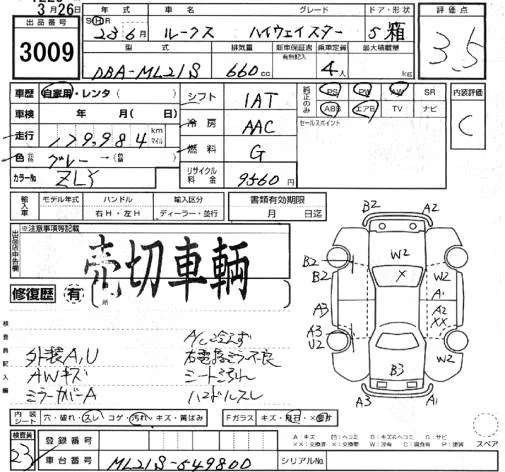 3月26日
出品番号
3009
年式 車名 グレード ドア・形状
S H 23 6月 ルークス ハイウェイスター 5 箱
評価点
3.5
型式 排気量 新車保証書 有無記入 乗車定員 最大積載量
DBA-ML21S 660 cc 4人 kg
車歴 自家用・レンタ( )
車検 年 月( 日)
走行 km マイル
色 グレー
カラーNo ZLY
シフト 1AT
冷房 AAC
燃料 G
リサイクル料金 9560円
純正のみ PS PW AW SR
ABS エアB TV ナビ
セールスポイント
内装評価
C
輸入車 モデル年式 ハンドル 輸入区分
右H・左H ディーラー・並行
書類有効期限
月 日迄
※注意事項等記載
出品店申告欄
売切車輌
修復歴 有
検査員記入欄
A/C冷えず
外装A,U 右電格ミラー不良
AWキズ
ミラーカバーA ハンドルスレ
B2 A2
B2 W2 W2
B2 X A1
A3 A2
XX
A3 A1
U2 W2
B3
A3 A1
スペア
内装シート 穴・破れ・スレ コゲ・汚れ・キズ・黄ばみ Fガラス キズ・飛石・×
検査員
23
登録番号
車台番号 ML21S-549800 シリアルNo.